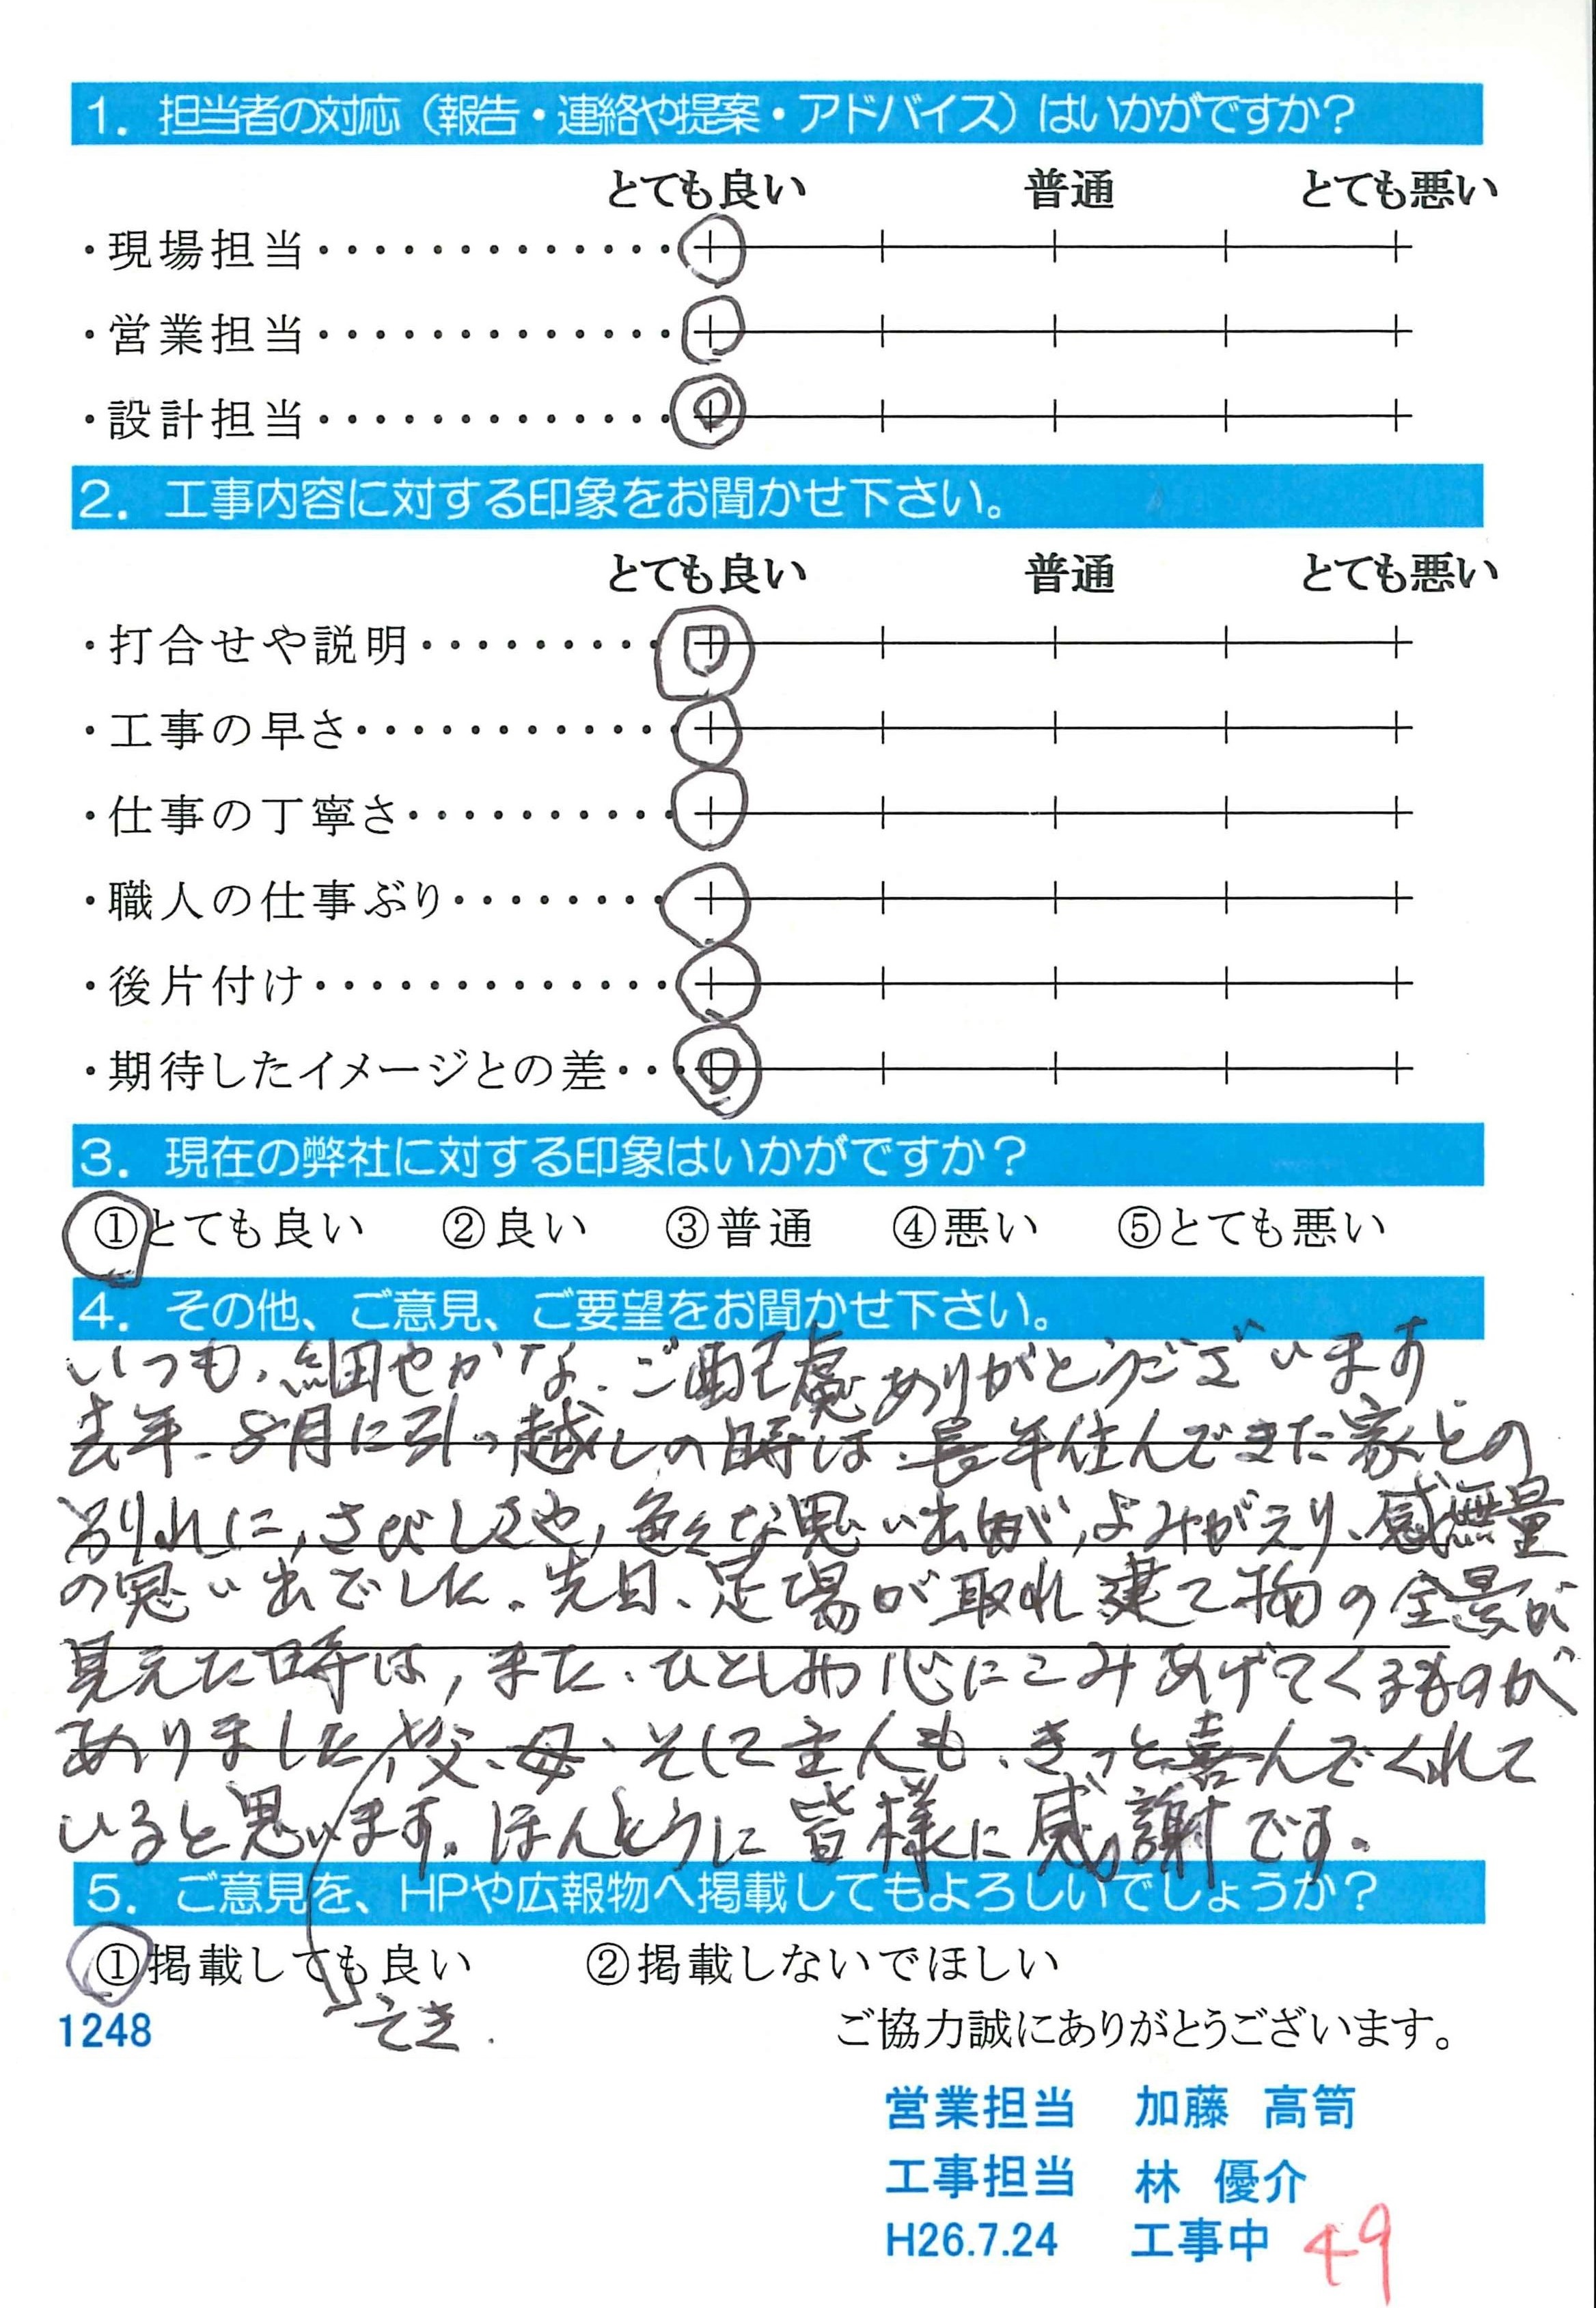 1. 担当者の対応（報告・連絡や提案・アドバイス）はいかがですか？
とても良い 普通 とても悪い
・現場担当・・・・・・・・・・・・・
・営業担当・・・・・・・・・・・・・
・設計担当・・・・・・・・・・・・・
2. 工事内容に対する印象をお聞かせ下さい。
とても良い 普通 とても悪い
・打合せや説明・・・・・・・・・
・工事の早さ・・・・・・・・・・・・
・仕事の丁寧さ・・・・・・・・・・
・職人の仕事ぶり・・・・・・・・
・後片付け・・・・・・・・・・・・・
・期待したイメージとの差・・・
3. 現在の弊社に対する印象はいかがですか？
①とても良い ②良い ③普通 ④悪い ⑤とても悪い
4. その他、ご意見、ご要望をお聞かせ下さい。
いつも、細やかな、ご配慮ありがとうございます
去年、8月に引っ越しの時は、長年住んできた家との
れに、さびしさや、色々な思い出が、よみがえり、感無量
の思い出でした。先日、足場が取れ建て物の全景が
見えた時は、また、ひとしお心にこみあげてくるものが
ありました 父、母、そして主人も、きっと喜んでくれて
いると思います。ほんとうに皆様に感謝です。
5. ご意見を、HPや広報物へ掲載してもよろしいでしょうか？
①掲載しても良い ②掲載しないでほしい
1248 ご協力誠にありがとうございます。
営業担当 加藤 高笥
工事担当 林 優介
H26.7.24 工事中 49